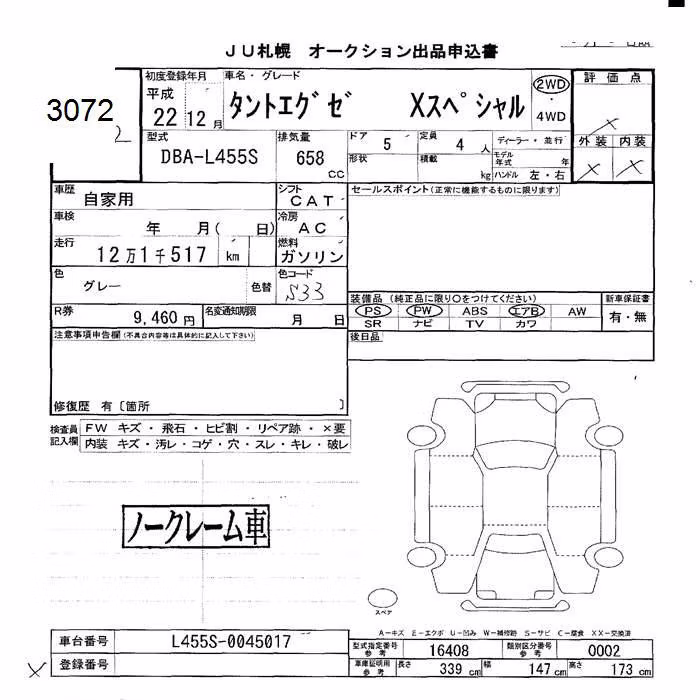 JU札幌 オークション出品申込書
3072
2
初度登録年月
平成
22 12月
車名・グレード
タントエグゼ Xスペシャル
2WD
・
4WD
評価点
×
外装 内装
× ×
型式
DBA-L455S
排気量
658
cc
ドア 5
形状
定員 4 人
積載 kg
ディーラー・並行
モデル年式 年
ハンドル 左・右
車歴
自家用
シフト
CAT
セールスポイント(正常に機能するものに限ります)
車検
年 月( 日)
冷房
AC
走行
12万1千517 km
燃料
ガソリン
色
グレー
色替
色コード
S33
R券
9,460円
名変通知期限
月 日
装備品 (純正品に限り○をつけてください)
PS PW ABS エアB AW
SR ナビ TV カワ
新車保証書
有・無
注意事項申告欄(不具合内容等は具体的に記入して下さい)
後日品
修復歴 有〔箇所 〕
検査員記入欄
FW キズ・飛石・ヒビ割・リペア跡・×要
内装 キズ・汚レ・コゲ・穴・スレ・キレ・破レ
ノークレーム車
スペア
A-キズ E-エクボ U-凹み W-補修跡 S-サビ C-腐食 XX-交換済
車台番号 L455S-0045017
×
登録番号
型式指定番号参考 16408
類別区分番号参考 0002
車庫証明用参考
長さ 339cm 幅 147cm 高さ 173cm